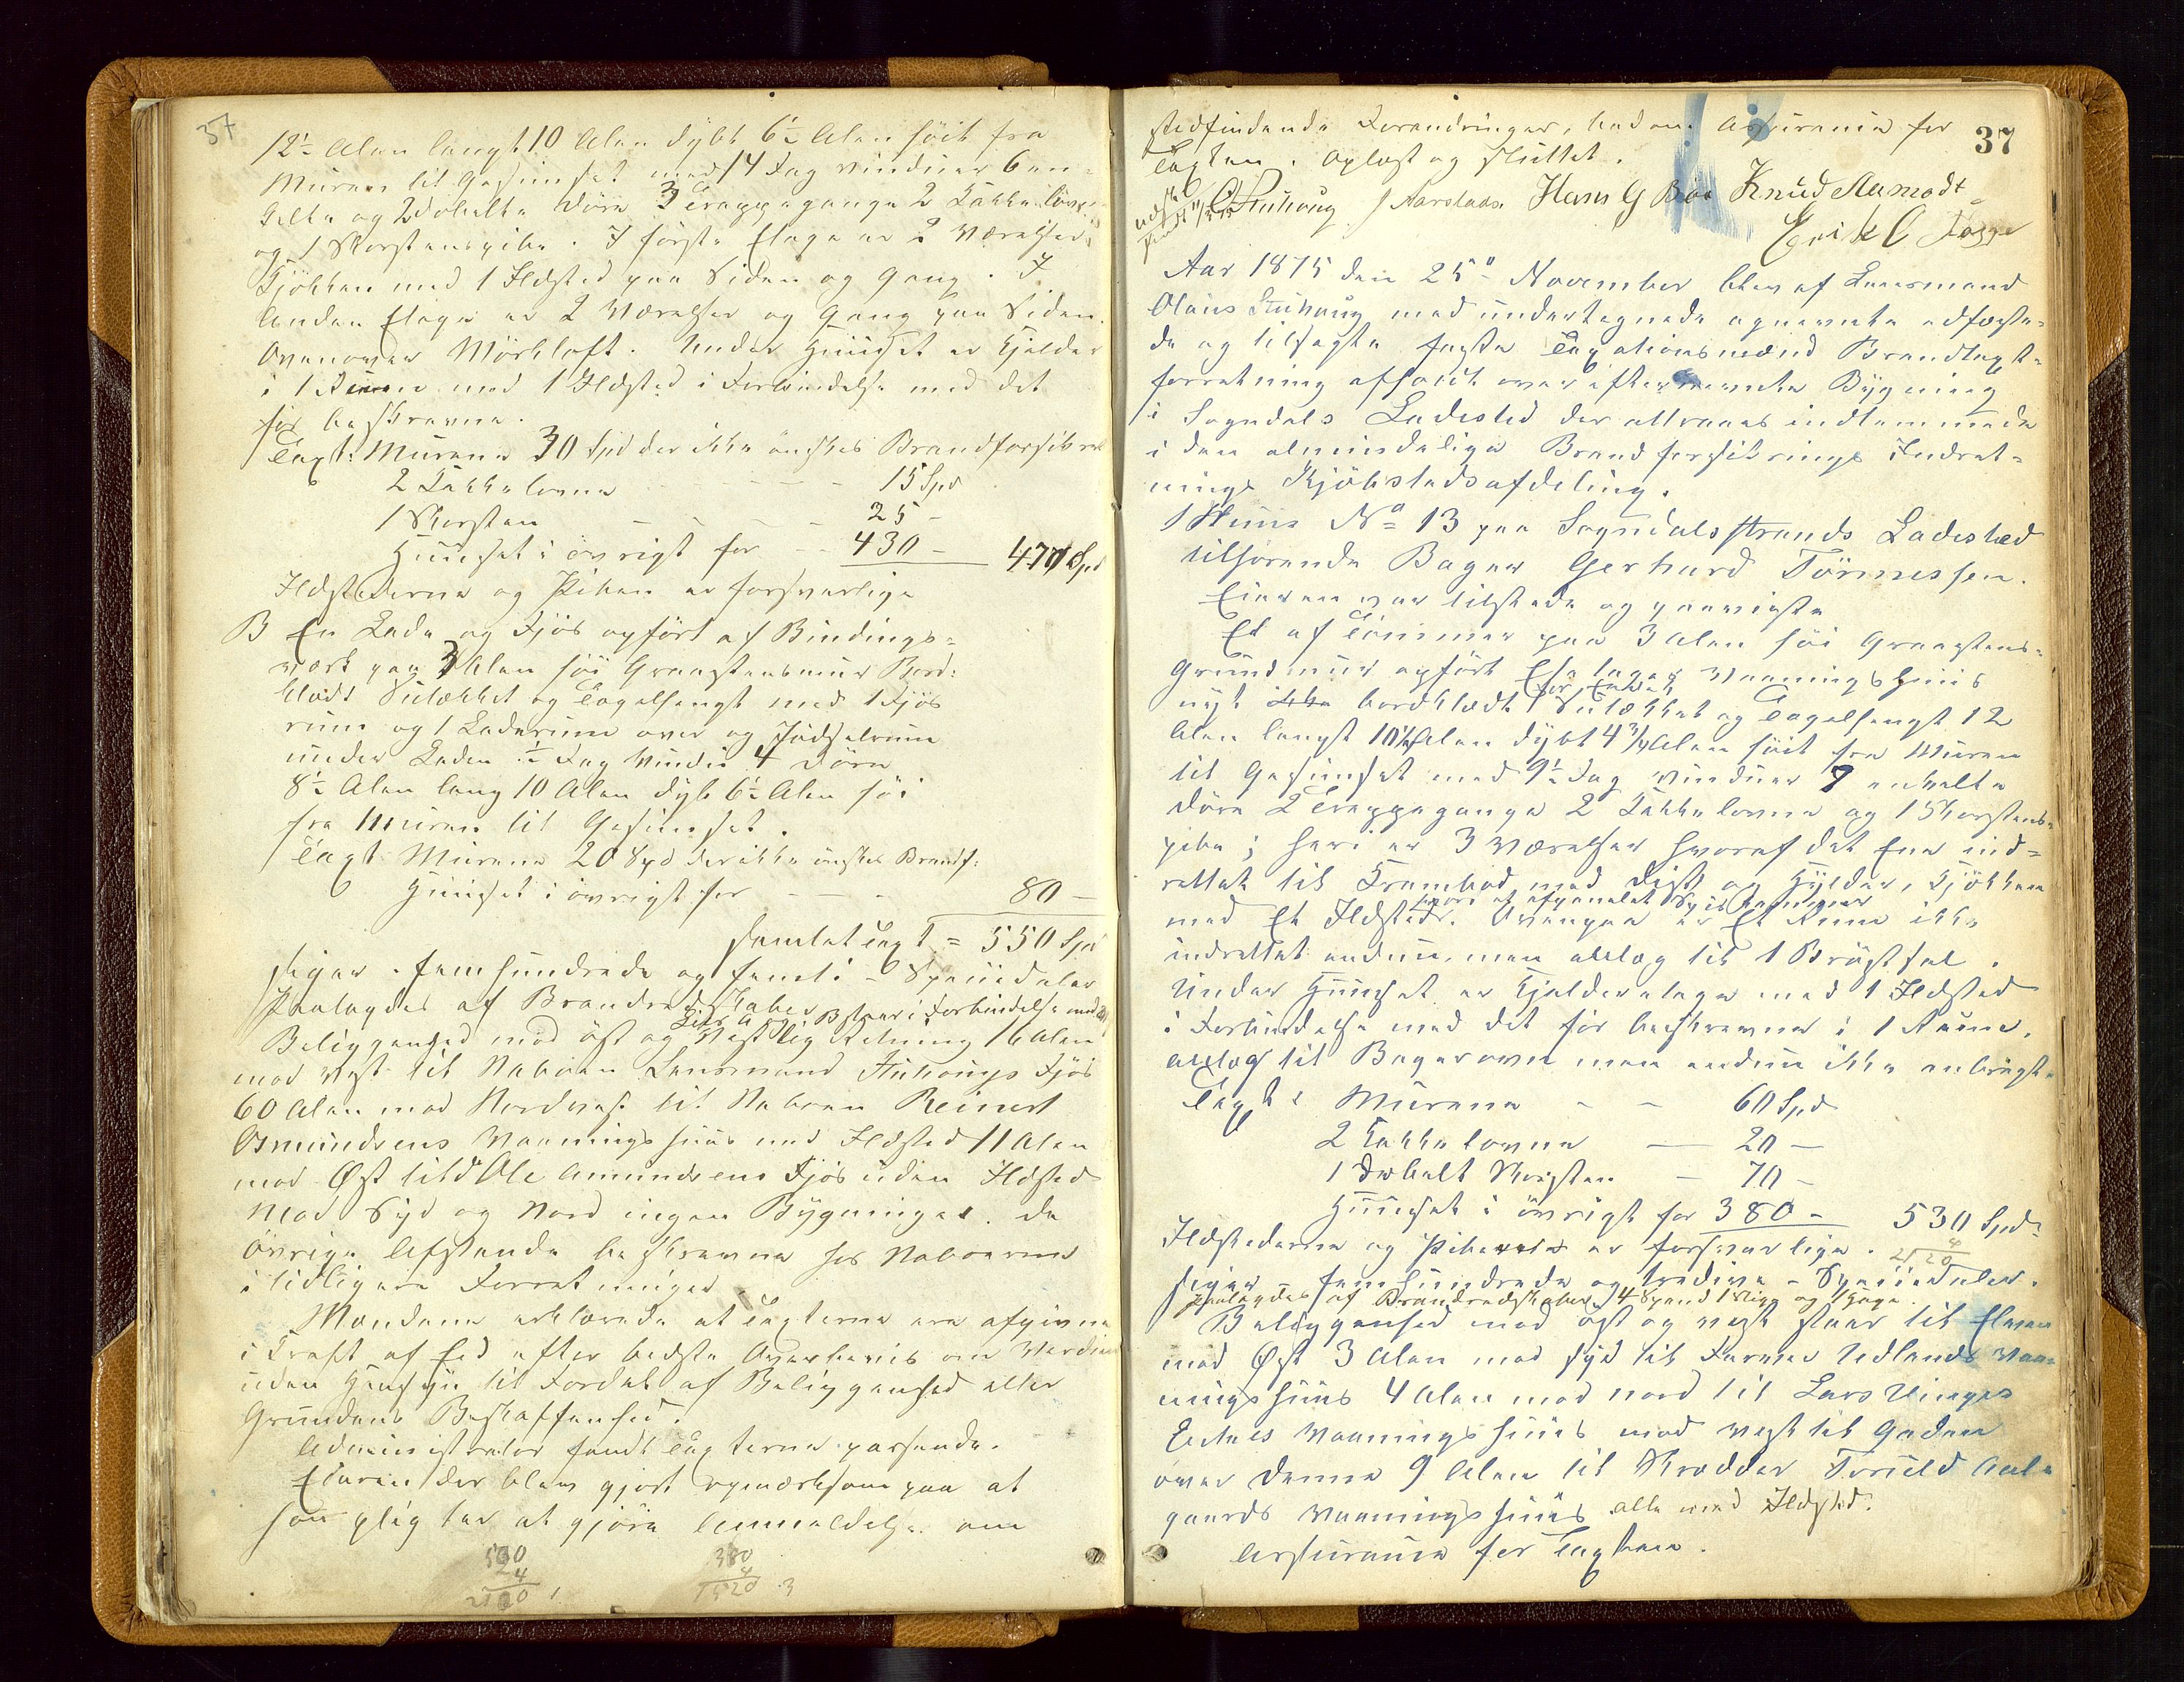 37
12½ Alen langt 10 Alen dybt 6½ Alen høit fra
Muren til Gesimset med 14 Fag Vinduer 6 en-
kelte og 2 dobelte Døre 3 Trappegange 2 Kakkelovne
og 1 Skorstenspibe. I første Etage er 2 Værelser
Kjøkken med 1 Ildsted paa Siden og Gang. I
Anden Etage er 2 Værelser og Gang paa Siden.
Ovenover Mörkloft. Under Huuset er Kjelder
i 1 Rum med 1 Ildsted i Forbindelse med det
før beskrevne.
Taxt: Murene 30 Spd der ikke ønskes Brandforsikret
2 Kakkelovne - - - 15 Spd
1 Skorsten - - - 25 -
Huuset i øvrigt for - - 430 - 470 Spd
Ildstederne og Piben er forsvarlige
B En Lade og Fjøs opført af Bindings-
værk paa 3 Alen høi Graastensmuur Bord-
klædt Sutækket og Tagelhengt med 1 Fjøs
rum og 1 Laderum over og Jødselrum
under Laden ½ Fag Vindue 4 Døre
8½ Alen lang 10 Alen dyb 6½ Alen høi
fra Muren til Gesimset.
Taxt Murene 20 Spd der ikke ønskes Brandf:
Huuset i øvrigt for - - - 80 -
samlet Taxt = 550 Spd
siger - femhundrede og femti - Speciedaler
Paalagdes af Brandredskaber
Litr A og B staar i Forbindelse med
Beliggenhed mod øst og Vestlig Retning 16 Alen
mod Vest til Naboen Lensmand Stuhougs Fjøs
60 Alen mod Nordvest til Naboen Reinert
Osmundsens Vaaningshuus med Ildsted 11 Alen
mod Øst til Ole Amundsens Fjøs uden Ildsted
Mod Syd og Nord ingen Bygninger. De
øvrige Afstande beskrevne hos Naboerne
i tidligere Forretninger.
Mændene erklærede at Taxterne ere afgivne
i Kraft af Eed efter bedste Overbeviis om Værdien
uden Hensyn til Fordel af Beliggenhed eller
Grundens Beskaffenhed.
Administrator fandt Taxterne passende.
Eieren der blev gjort opmærksom paa at
han pligter at gjøre Anmeldelse om
530
4
2120
380
4
1520
37
stedfindende Forandringer, bad om Assurance for
Taxten. Oplæst og sluttet.
O Stuhoug J Aarstad Hans G Bøe Knud Aamodt
Erik O
Aar 1875 den 25de November blev af Lensmand
Olaus Stuhoug med undertegnede opnævnte edfæste-
de og tilsagte faste Taxationsmænd Brandtaxt-
forretning afholdt over efternævnte Bygning
i Sogndals Ladested der attraaes indlemmede
i den almindelige Brandforsikrings Indret-
nings Kjøbstadsafdeling.
1 Huus No 13 paa Sogndalsstrands Ladested
tilhørende Bager Gerhard Tönnessen.
Eieren var tilstede og paaviste
Et af Tømmer paa 3 Alen høi Graastens-
Grundmuur opført Etages Vaaningshuus
nyt bordklædt Sutækket og Tagelhengt 12
Alen langt 10½ Alen dybt 4¾ Alen høit fra Muren
til Gesimset med 9½ Fag Vinduer 7 enkelte
Døre 2 Trappegange 2 Kakkelovne og 1 Skorstens-
pibe; heri er 3 Værelser hvoraf det Ene ind-
rettet til Krambod med Disk og Hylder, Kjøkken
hvori et afpanelet Spiskammer
med Et Ildsted. Ovenpaa er Et Rum ikke
indrettet endnu, men anlæg til 1 Brystsal.
Under Huuset er Kjelderetage med 1 Ildsted
i Forbindelse med det før beskrevne i 1 Rum,
anlæg til Bagerovn men endnu ikke anbragt.
Taxt: Murene - - 60 Spd
2 Kakkelovne — 20 —
1 Dobelt Skorsten — 70 -
Huuset i øvrigt for 380 - 530 Spd
Ildstederne og Piberne er forsvarlige.
siger - femhundrede og tredive - Speciedaler.
Paalagdes af Brandredskaber 4 Spand 1 Stige og 1 Hage.
Beliggenhed mod øst og vest staar til Elven
mod Øst 3 Alen mod syd til Farver Udlands Vaa-
ningshuus 4 Alen mod nord til Lars Unges
Enkes Vaaningshuus mod vest til Gaden
over denne 9 Alen til Skrædder Torield Aal-
gaards Vaaningshuus alle med Ildsted.
Assurance for Taxten.